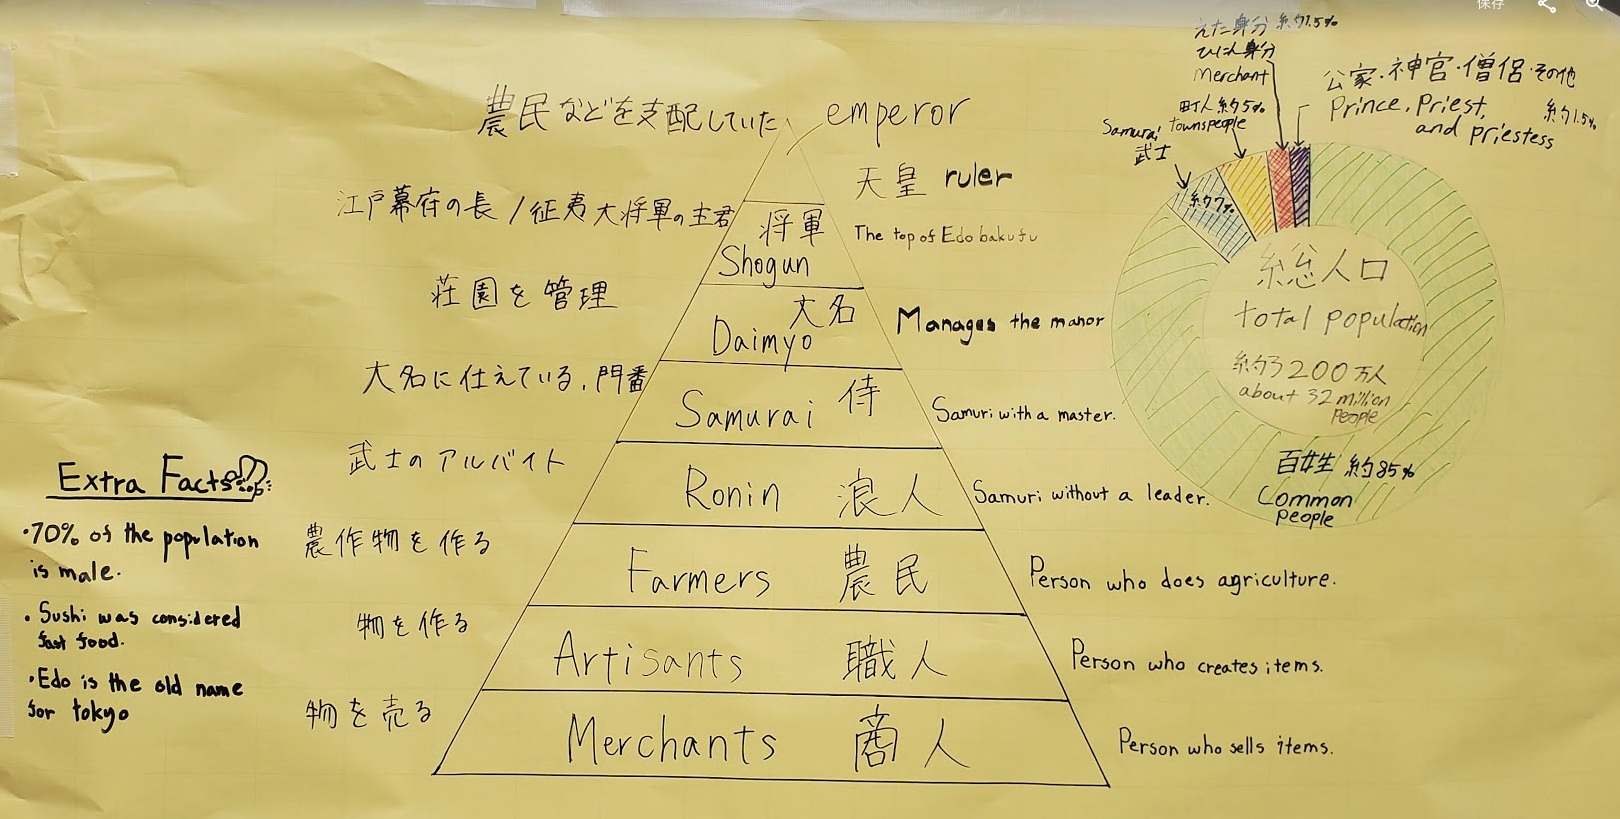 保存
農民などを支配していた
emperor
天皇 ruler
江戸幕府の長 / 征夷大将軍の主君
将軍
Shogun
The top of Edo bakufu
荘園を管理
大名
Daimyo
Manages the manor
大名に仕えている, 門番
Samurai 侍
Samuri with a master.
武士のアルバイト
Ronin 浪人
Samuri without a leader.
農作物を作る
Farmers 農民
Person who does agriculture.
物を作る
Artisants 職人
Person who creates items.
物を売る
Merchants 商人
Person who sells items.
Extra Facts
・70% of the population
is male.
・Sushi was considered
fast food.
・Edo is the old name
for tokyo
えた身分 約1.5%
ひにん身分
merchant
町人 約5%
townspeople
Samurai
武士
約7%
公家・神官・僧侶・その他
Prince, Priest, 約1.5%
and priestess
総人口
total population
約3200万人
about 32 million
people
百姓 約85%
Common
people